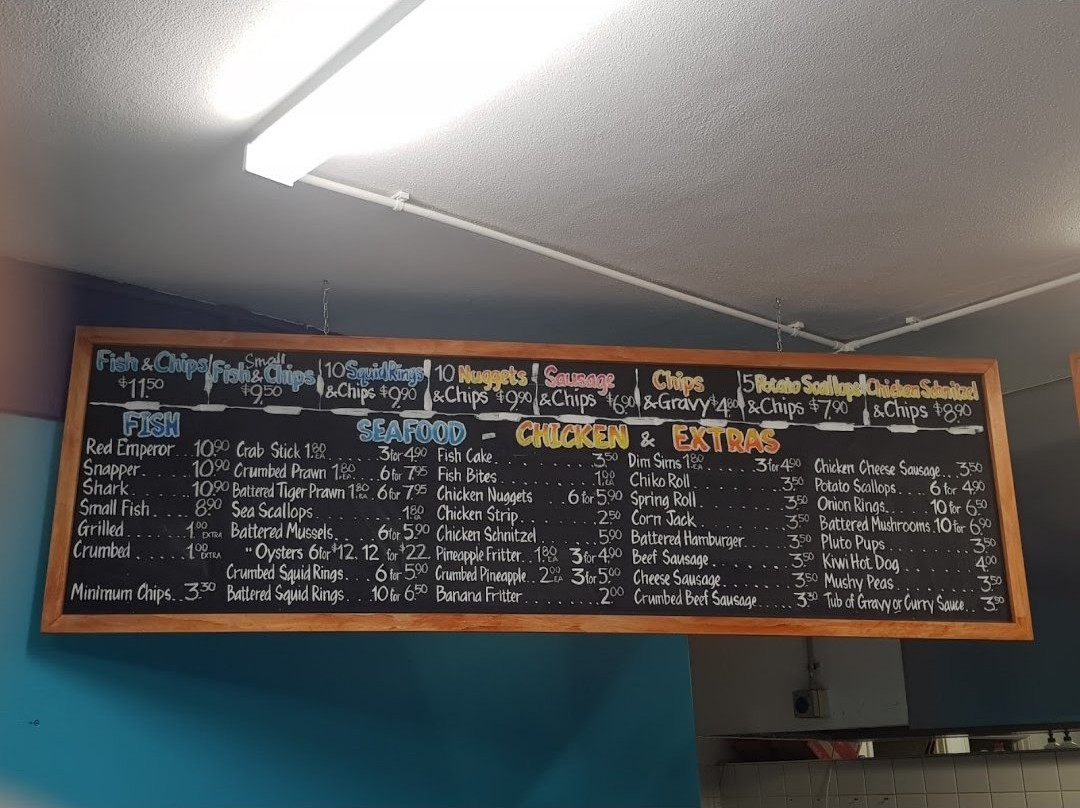 Fish & Chips
$11.50
Small
Fish & Chips
$9.50
10 Squid Rings
& Chips $9.90
10 Nuggets
& Chips $9.90
Sausage
& Chips $6.90
Chips
& Gravy $4.80
5 Potato Scallops
& Chips $7.90
Chicken Schnitzel
& Chips $8.90
FISH
SEAFOOD - CHICKEN & EXTRAS
Red Emperor 10.90
Snapper. 10.90
Shark. 10.90
Small Fish 8.90
Grilled 1.00 EXTRA
Crumbed 1.00 EXTRA
Minimum Chips.. 3.30
Crab Stick 1.80 EA 3 for 4.90
Crumbed Prawn 1.80 EA .. 6 for 7.95
Battered Tiger Prawn 1.80 EA .. 6 for 7.95
Sea Scallops. 1.80 EA
Battered Mussels. 6 for 5.90
" Oysters 6 for $12. 12 for $22
Crumbed Squid Rings.. 6 for 5.90
Battered Squid Rings.. 10 for 6.50
Fish Cake. 3.50
Fish Bites 1.00 EA
Chicken Nuggets 6 for 5.90
Chicken Strip 2.50
Chicken Schnitzel 5.90
Pineapple Fritter.. 1.80 EA 3 for 4.90
Crumbed Pineapple.. 2.00 EA 3 for 5.00
Banana Fritter 2.00
Dim Sims 1.80 EA 3 for 4.90
Chiko Roll 3.50
Spring Roll 3.50
Corn Jack 3.50
Battered Hamburger.. 3.50
Beef Sausage 3.50
Cheese Sausage 3.50
Crumbed Beef Sausage 3.30
Chicken Cheese Sausage.. 3.50
Potato Scallops. 6 for 4.90
Onion Rings. 10 for 6.50
Battered Mushrooms. 10 for 6.90
Pluto Pups. 3.50
Kiwi Hot Dog 4.00
Mushy Peas 3.50
Tub of Gravy or Curry Sauce.. 3.50